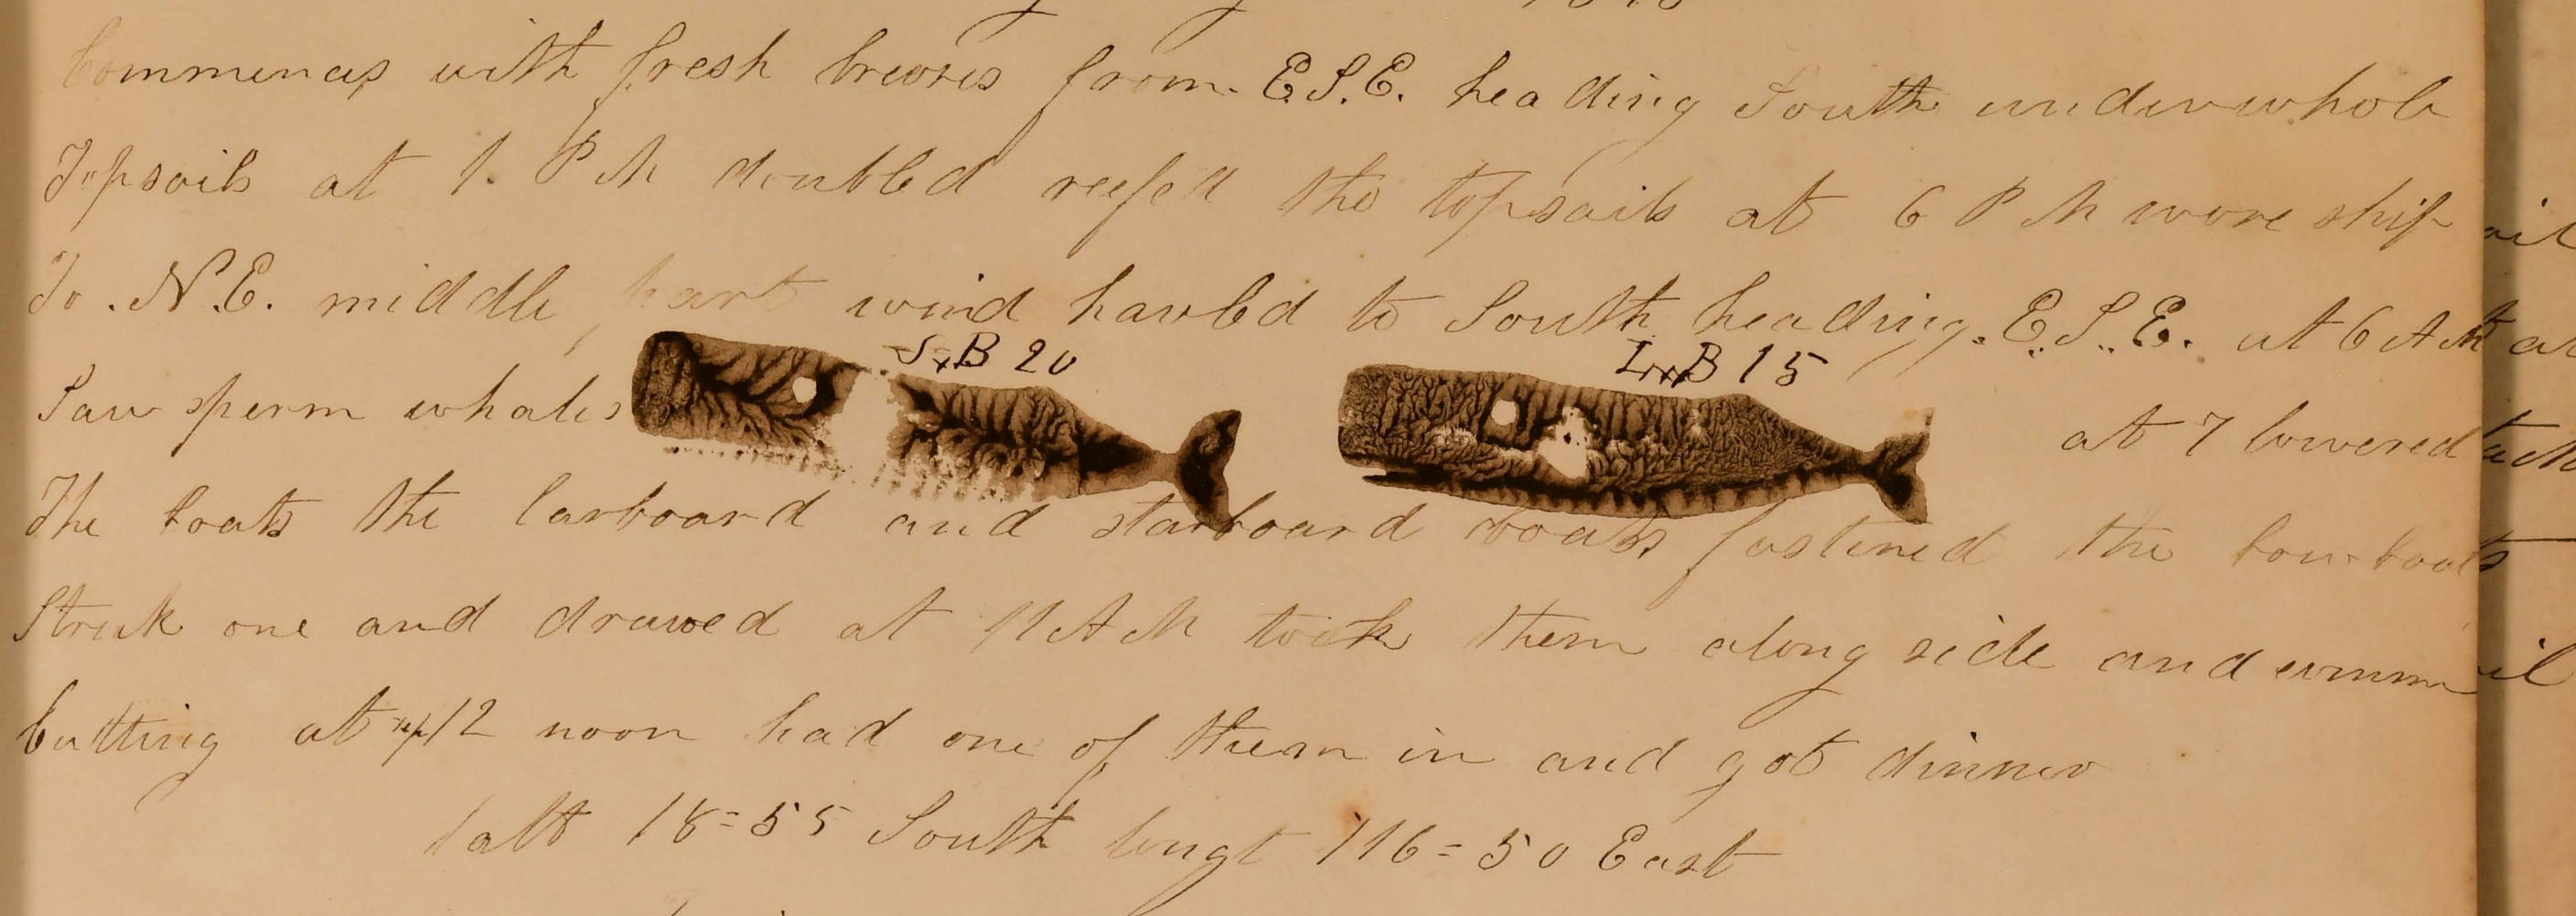 Commences with fresh breozes from. E.S.E. heading South underwhole
Topsails at 1. P M doubled reefed the topsails at 6 P M wore ship
To. N.E. middle part wind hauled to South heading. E.S.E. at 6 A M
S B 20 L B 15
Saw sperm whales at 7 lowered
The boats the larboard and starboard boats fastened the bow boats
Struk one and drawed at 11 A M took them along side and
Cutting at 12 noon had one of them in and got dinner
latt 18=55 South longt 116=50 East